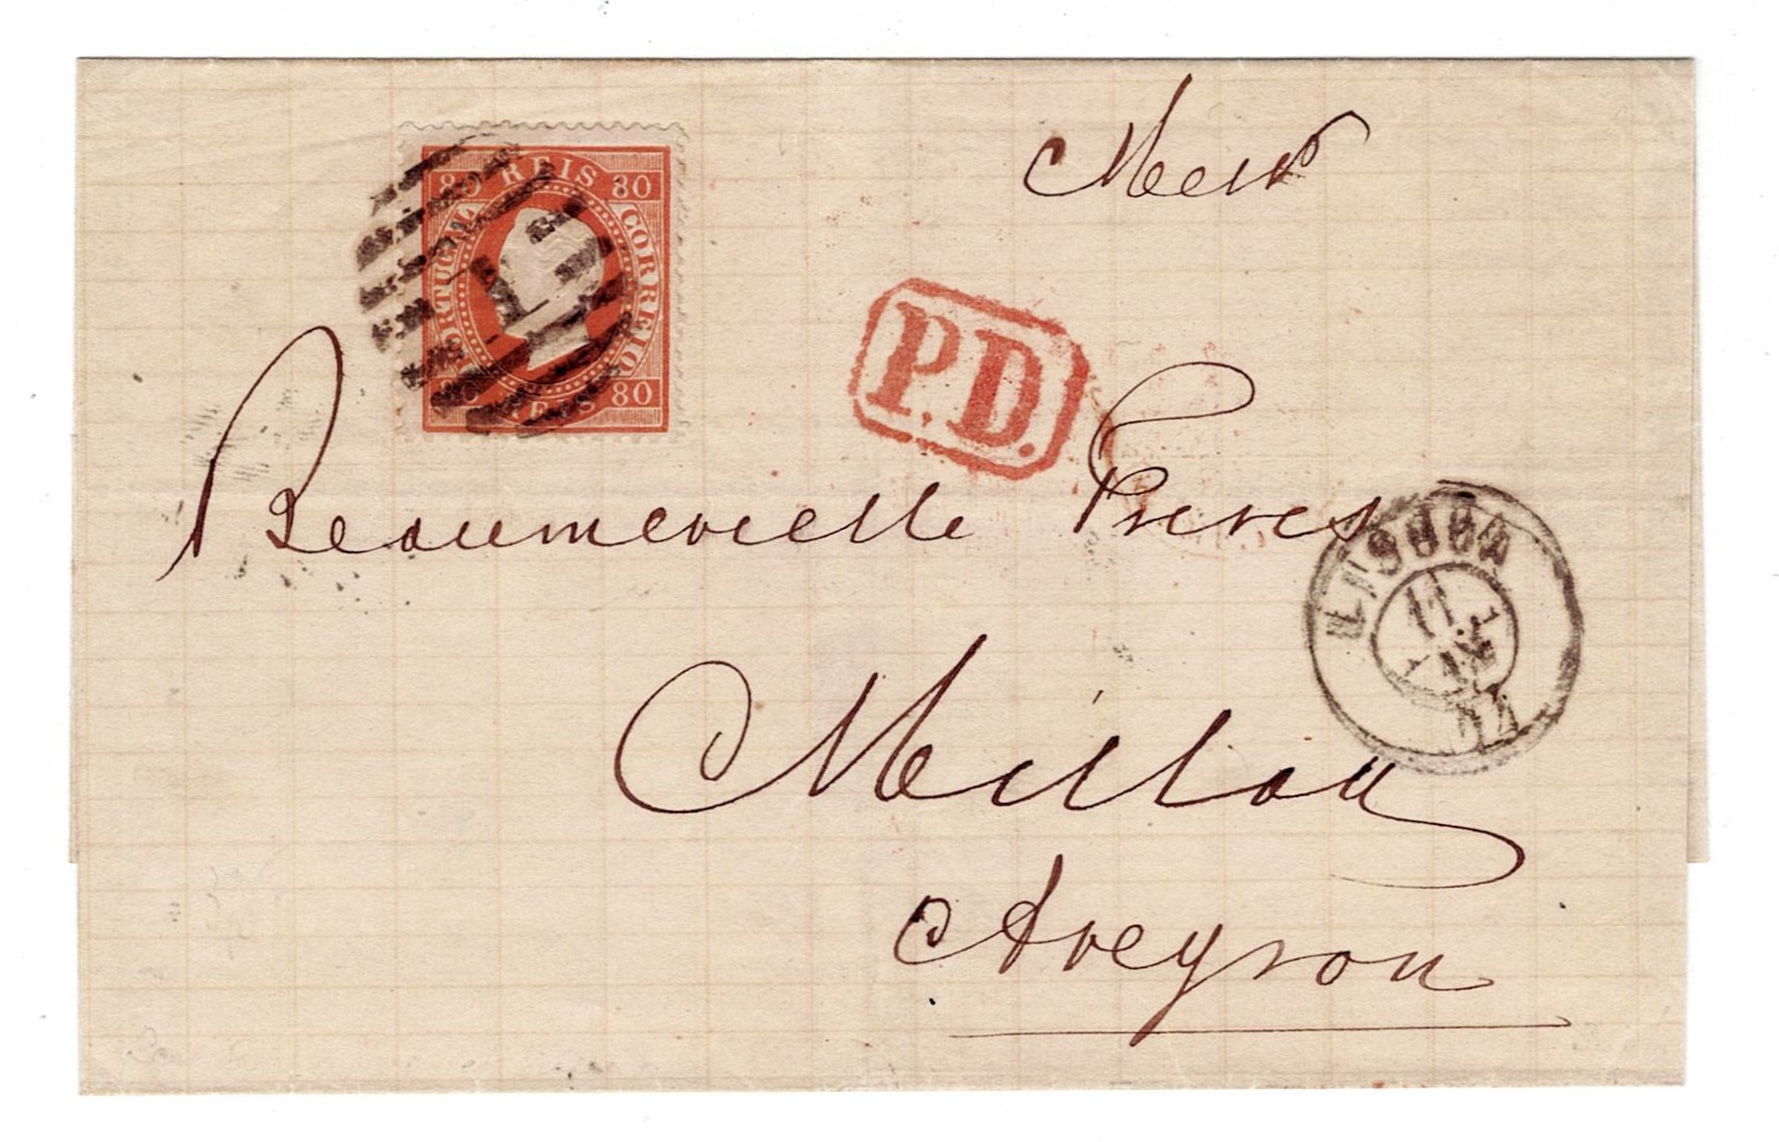 Mess
80 REIS 80
PORTUGAL CORREIO
80 REIS 80
1
P.D.
Beaumevielle Freres
LISBOA
11
74
Millau
Aveyron